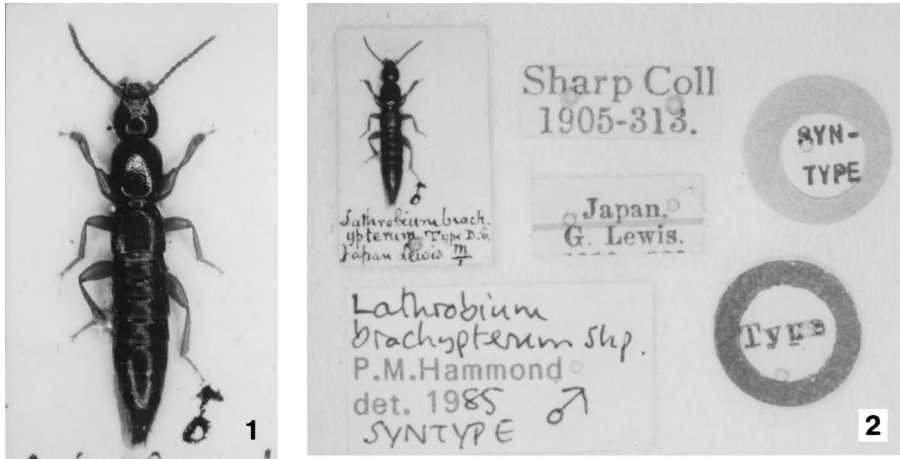 1
♂
Lathrobium brach.
ypterum Type D.S.
Japan Lewis
♂
Sharp Coll
1905-313.
Japan.
G. Lewis.
SYN-
TYPE
Type
Lathrobium
brachypterum Shp.
P.M.Hammond
det. 1985 ♂
SYNTYPE
2